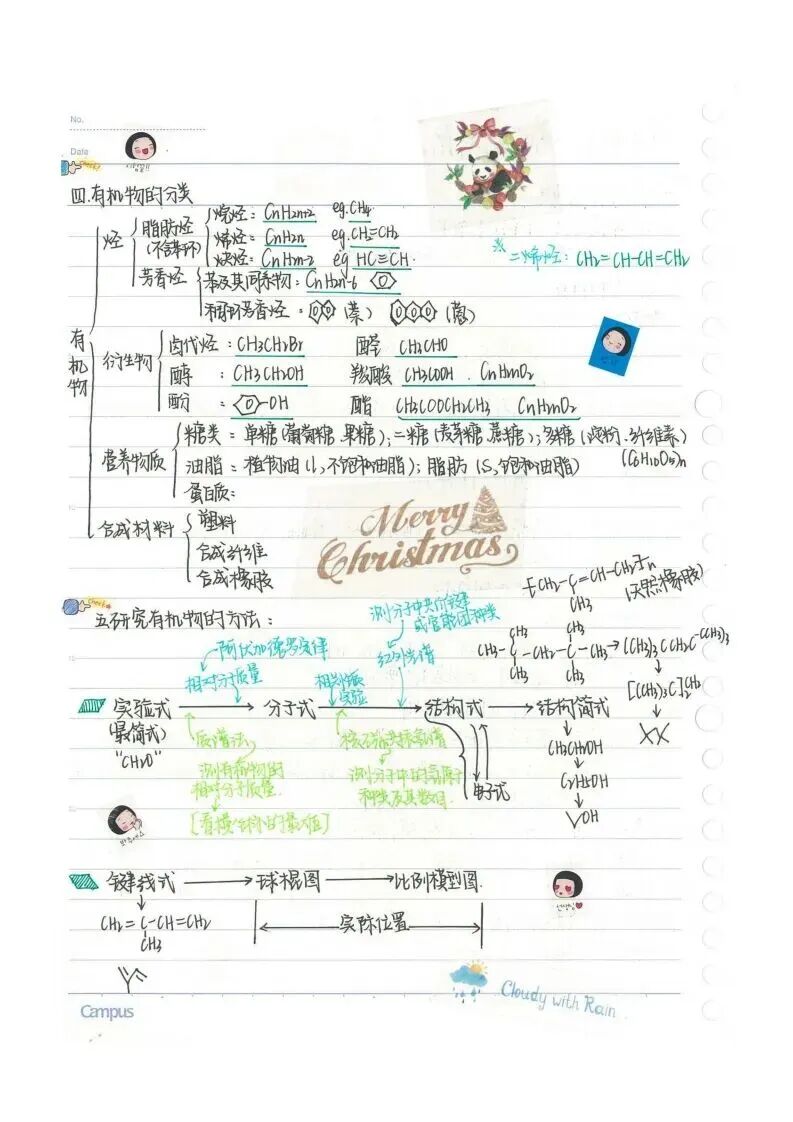 No.
Date
Check!
四.有机物的分类
有机物
烃
脂肪烃
(不含苯环)
烷烃: CnH2n+2 eg.CH4
烯烃: CnH2n eg.CH2=CH2
炔烃: CnH2n-2 eg HC≡CH.
※二烯烃: CH2=CH-CH=CH2
芳香烃
苯及其同系物: CnH2n-6
稠环芳香烃: (萘) (蒽)
衍生物
卤代烃: CH3CH2Br 醛 CH3CHO
醇: CH3CH2OH 羧酸 CH3COOH. CnH2nO2
酚: -OH 酯 CH3COOCH2CH3 CnH2nO2
营养物质
糖类: 单糖(葡萄糖.果糖);二糖(麦芽糖.蔗糖);多糖(淀粉.纤维素)
(C6H10O5)n
油脂: 植物油(l,不饱和油脂); 脂肪(S,饱和油脂)
蛋白质:
合成材料
塑料
合成纤维
合成橡胶
Merry
Christmas
-[CH2-C=CH-CH2]n
CH3
(天然橡胶)
Check
五.研究有机物的方法:
测分子中共价键
或官能团种类
阿伏加德罗定律
红外光谱
相对分子质量
实验
CH3 CH3
CH3-C-CH2-C-CH3
CH3 CH3
(CH3)3CCH2C(CH3)3
[(CH3)3C]2CH2
实验式 分子式 结构式 结构简式
(最简式)
"CH2O"
质谱法
测有机物的
相对分子质量.
[看横坐标的最大值]
核磁共振氢谱
测分子中的氢原子
种类及其数目.
电子式
CH3CH2OH
C2H5OH
OH
键线式 球棍图 比例模型图.
CH2=C-CH=CH2
CH3
实际位置
Cloudy with Rain
Campus